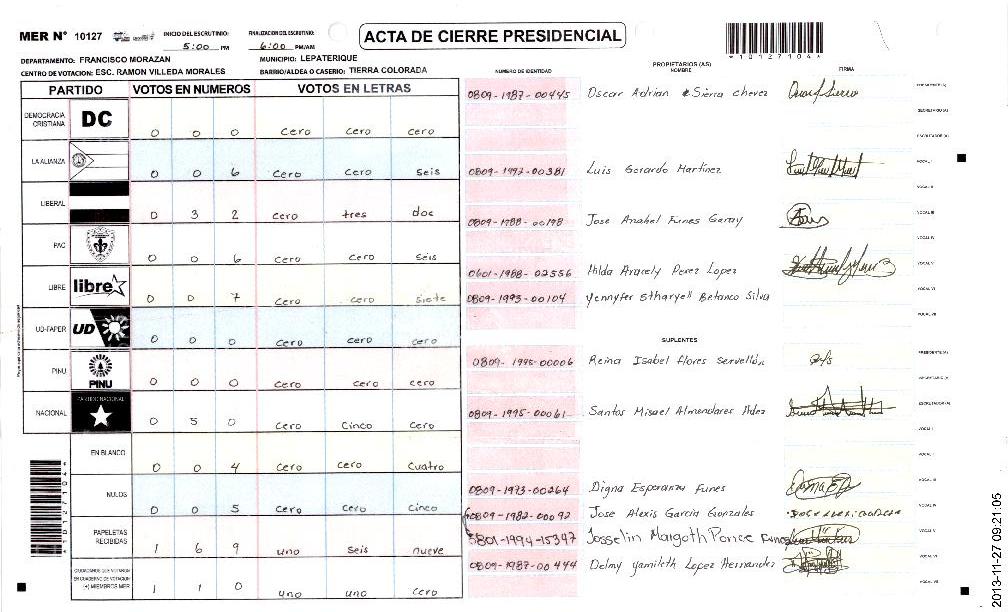 MER N° 10127
INICIO DEL ESCRUTINIO: 5:00 PM
FINALIZACION DEL ESCRUTINIO: 6:00 PM/AM
ACTA DE CIERRE PRESIDENCIAL
*101271*
DEPARTAMENTO: FRANCISCO MORAZAN MUNICIPIO: LEPATERIQUE
CENTRO DE VOTACION: ESC. RAMON VILLEDA MORALES BARRIO/ALDEA O CASERIO: TIERRA COLORADA
NUMERO DE IDENTIDAD PROPIETARIOS (AS) NOMBRE FIRMA
PARTIDO VOTOS EN NUMEROS VOTOS EN LETRAS
DEMOCRACIA CRISTIANA DC 0 0 0 cero cero cero
LA ALIANZA 0 0 6 cero cero seis
LIBERAL 0 3 2 cero tres doc
PAC 0 0 6 cero cero seis
LIBRE libre 0 0 7 cero cero siete
UD-FAPER UD 0 0 0 cero cero cero
PINU PINU 0 0 0 cero cero cero
NACIONAL PARTIDO NACIONAL 0 5 0 cero Cinco cero
EN BLANCO 0 0 4 cero cero cuatro
NULOS 0 0 5 cero cero cinco
PAPELETAS RECIBIDAS 1 6 9 uno seis nueve
CIUDADANOS QUE VOTARON EN CUADERNO DE VOTACION (+) MIEMBROS MER 1 1 0 uno uno cero
0809-1987-00445 Oscar Adrian Sierra chevez
SECRETARIO (A)
ESCRUTADOR (A)
0809-1992-00381 Luis Gerardo Martinez VOCAL I
VOCAL II
0809-1988-00198 Jose Anabel Funes Garay VOCAL III
VOCAL IV
0601-1988-02556 Hilda Aracely Perez Lopez VOCAL V
0809-1993-00104 Yennyfer Stharyell Betanco Silva VOCAL VI
VOCAL VII
SUPLENTES
0809-1995-00006 Reina Isabel flores Servellón PRESIDENTE (A)
SECRETARIO (A)
0809-1995-00061 Santos Misael Almendares ESCRUTADOR (A)
VOCAL I
VOCAL II
0809-1973-00264 Digna Esperanza Funes VOCAL III
0809-1982-00092 Jose Alexis Garcia Gonzales VOCAL IV
0801-1994-15347 Josselin Margoth Ponce Funes VOCAL V
0809-1987-00444 Delmy yamileth Lopez Hernandez VOCAL VI
VOCAL VII
2013-11-27 09:21:05